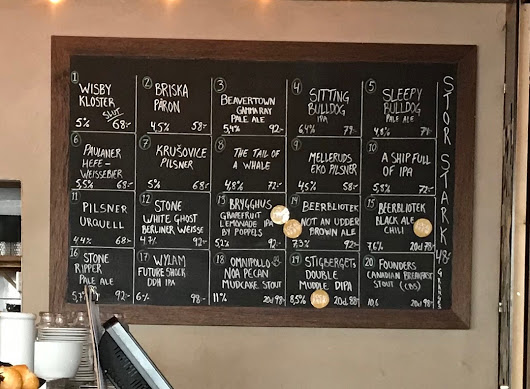 1
WISBY
KLOSTER
SLUT
5% 68:-
2
BRISKA
PÄRON
4,5% 58:-
3
BEAVERTOWN
GAMMARAY
PALE ALE
5,4% 92:-
4
SITTING
BULLDOG
IPA
6,4% 79:-
5
SLEEPY
BULLDOG
PALE ALE
4,8% 79:-
6
PAULANER
HEFE-
WEISSBIER
5,5% 68:-
7
KRUŠOVICE
PILSNER
5% 68:-
8
THE TAIL OF
A WHALE
4,8% 72:-
9
MELLERUDS
EKO PILSNER
4,5% 58:-
10
A SHIP FULL
OF IPA
5,8% 72:-
11
PILSNER
URQUELL
4,4% 68:-
12
STONE
WHITE GHOST
BERLINER WEISSE
4,7% 92:-
13
BRYGGHUS
GRAPEFRUIT
LEMONADE IPA
BY POPPELS
5,2% 92:-
14
BEERBLIOTEK
NOT AN UDDER
BROWN ALE
7,3% 92:-
15
BEERBLIOTEK
BLACK ALE
CHILI
7,6% 20cl 78:-
16
STONE
RIPPER
PALE ALE
5,7% 92:-
17
WYLAM
FUTURE SHOCK
DDH IPA
6% 98:-
18
OMNIPOLLO
NOA PECAN
MUDCAKE STOUT
11% 20cl 98:-
19
STIGBERGETS
DOUBLE
MUDDLE DIPA
8,5% 20cl 88:-
20
FOUNDERS
CANADIAN BREAKFAST
STOUT (CBS)
10,6 20cl 98:-
STOR STARK
48:-